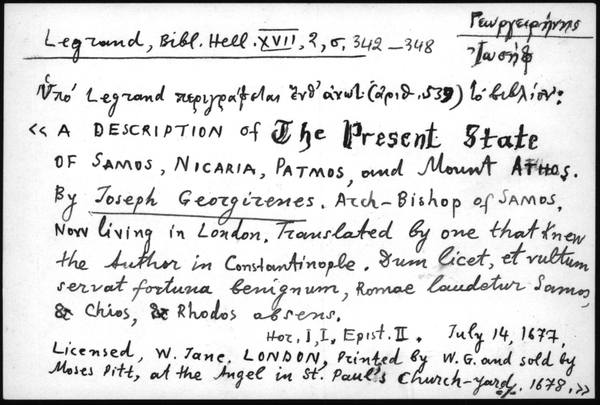 Γεωργειρήνης
Ἰωσήφ
Legrand, Bibl. Hell. XVII, 2, σ. 342–348
Ὑπό Legrand περιγράφεται ἐνθ' ἀνωτ. (ἀριθ. 539) τὸ βιβλίον:
«A DESCRIPTION of The Present State
OF SAMOS, NICARIA, PATMOS, and Mount ATHOS.
By Joseph Georgirenes. Arch-Bishop of SAMOS.
Now living in London. Translated by one that Knew
the Author in Constantinople. Dum licet, et vultum
servat fortuna benignum, Romae laudetur Samos,
& Chios, & Rhodos absens.
Hor. I, I, Epist. II. July 14, 1677.
Licensed, W. Jane. LONDON, Printed by W.G. and sold by
Moses Pitt, at the Angel in St. Paul's Church-yard, 1678.»